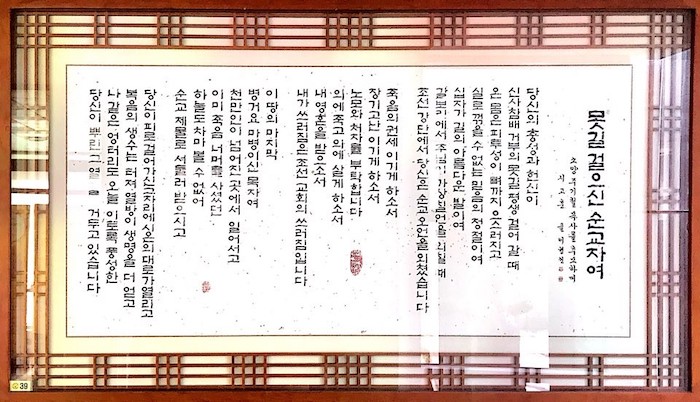 못길 걸으신 순교자여
추모하며
당신의 충성과 헌신이
신사참배 거부의 못길 평생 걸어 갈 때
온 몸은 피투성이 뼈까지 으스러지고
실로 꺾을 수 없는 믿음의 정절이여
십자가 길의 아름다운 발이여
갈보리에서 주님이 가상칠언을 외칠 때
조선 강단에서 당신은 순교 오언을 외쳤습니다
죽음의 권세 이기게 하소서
장기고난 이기게 하소서
노모와 처자를 부탁합니다
의에 죽고 의에 살게 하소서
내 영혼을 받으소서
내가 쓰러짐은 조선 교회의 쓰러짐입니다
이 땅의 마지막
병거요 마병이신 목자여
천만인이 넘어진 곳에서 일어서고
이미 죽음 너머를 사셨던
하늘도 차마 볼 수 없어
순교 제물로 서둘러 받으시고
당신이 피로 걸어가는 자리에 대로가 열리고
복음의 생수는 터져 열방이 생명을 더 얻고
나 같은 엉터리도 오늘 이토록 풍성한
당신이 뿌린 그 거두고 있습니다
39